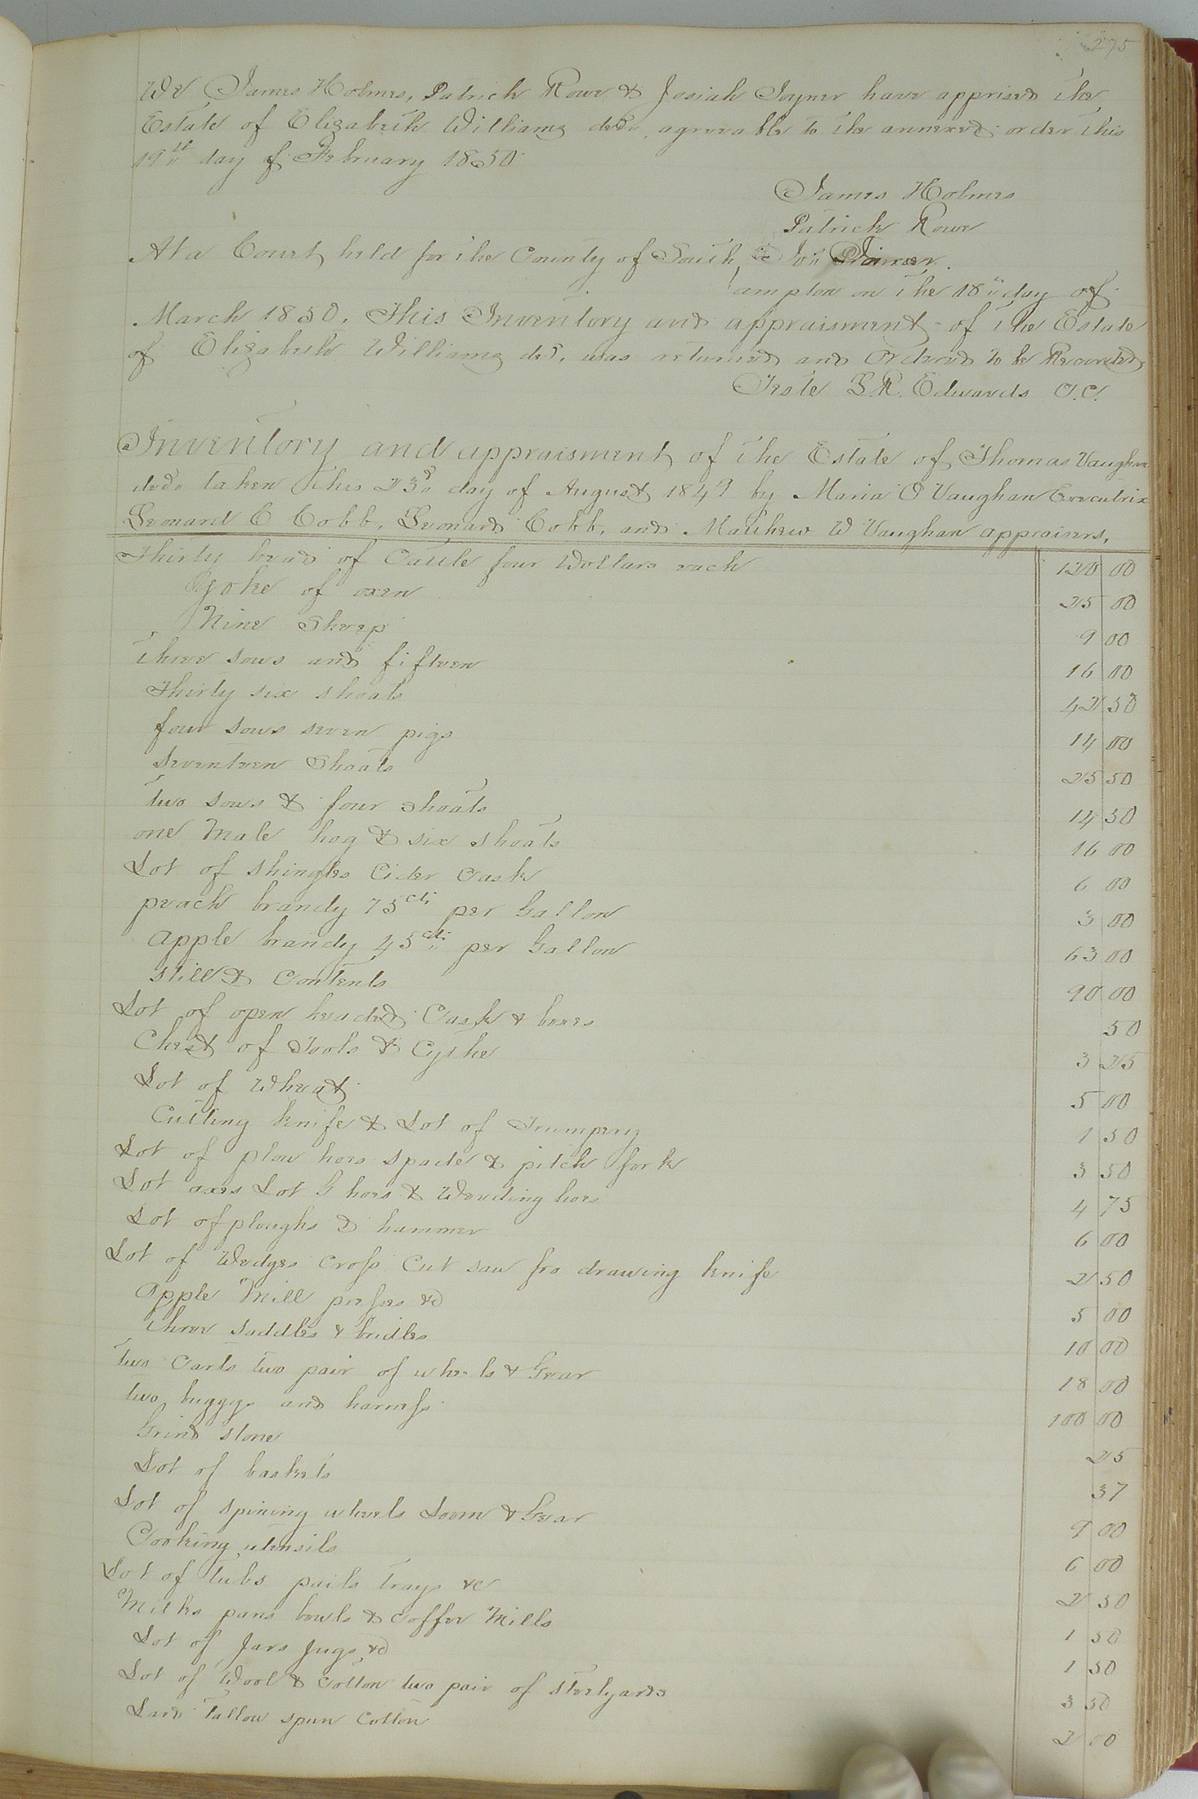 275
We James Holmes, Patrick Rowe & Josiah Joyner have apprised the
Estate of Elizabeth Williams decd. agreeable to the annexed order this
19th day of February 1850
James Holmes
Patrick Rowe
At a Court held for the County of South
Joyner
ampton on the 18th day of
March 1850. This Inventory and appraisment of the Estate
of Elizabeth Williams decd. was returned and Ordered to be Recorded
Teste L. R. Edwards C.C.
Inventory and appraisment of the Estate of Thomas Vaughan
decd. taken this 23rd day of August 1849 by Maria O Vaughan Executrix
Leonard C Cobb, Leonard Cobb, and Mathew W Vaughan appraisers,
Thirty head of Cattle four Dollars each 120 00
Yoke of oxen 25 00
Nine Sheep 9 00
Three sows and fifteen 16 00
Thirty six shoats 42 50
four sows seven pigs 14 00
Seventeen Shoats 25 50
two sows & four shoats 14 50
one Male hog & six shoats 16 00
Lot of Shingles Cider Cask 6 00
peach brandy 75cts per Gallon 3 00
Apple brandy 45cts per Gallon 63 00
Still & Contents 90 00
Lot of open headed Cask & boxes 50
Chest of Tools & Cythe 3 25
Lot of Wheat 5 00
Cutting knife & Lot of Trumpery 1 50
Lot of plow hoes spade & pitch fork 3 50
Lot axes Lot G hoes & Weeding hoes 4 75
Lot of ploughs & hammer 6 00
Lot of Wedges Cross Cut saw fro drawing knife 2 50
Apple Mill &c 5 00
three saddles & bridles 10 00
two Carts two pair of wheels & Gear 18 00
two buggys and harness 100 00
Grind stone 25
Lot of baskets 37
Lot of spining wheels Loom & Gear 9 00
Cooking utensils 6 00
Lot of tubs pails trays &c 2 50
Milks pans bowls & Coffee Mills 1 50
Lot of Jars Jugs &c 1 50
Lot of Wool & Cotton two pair of steelyards 3 50
Lard Tallow spun Cotton 2 00